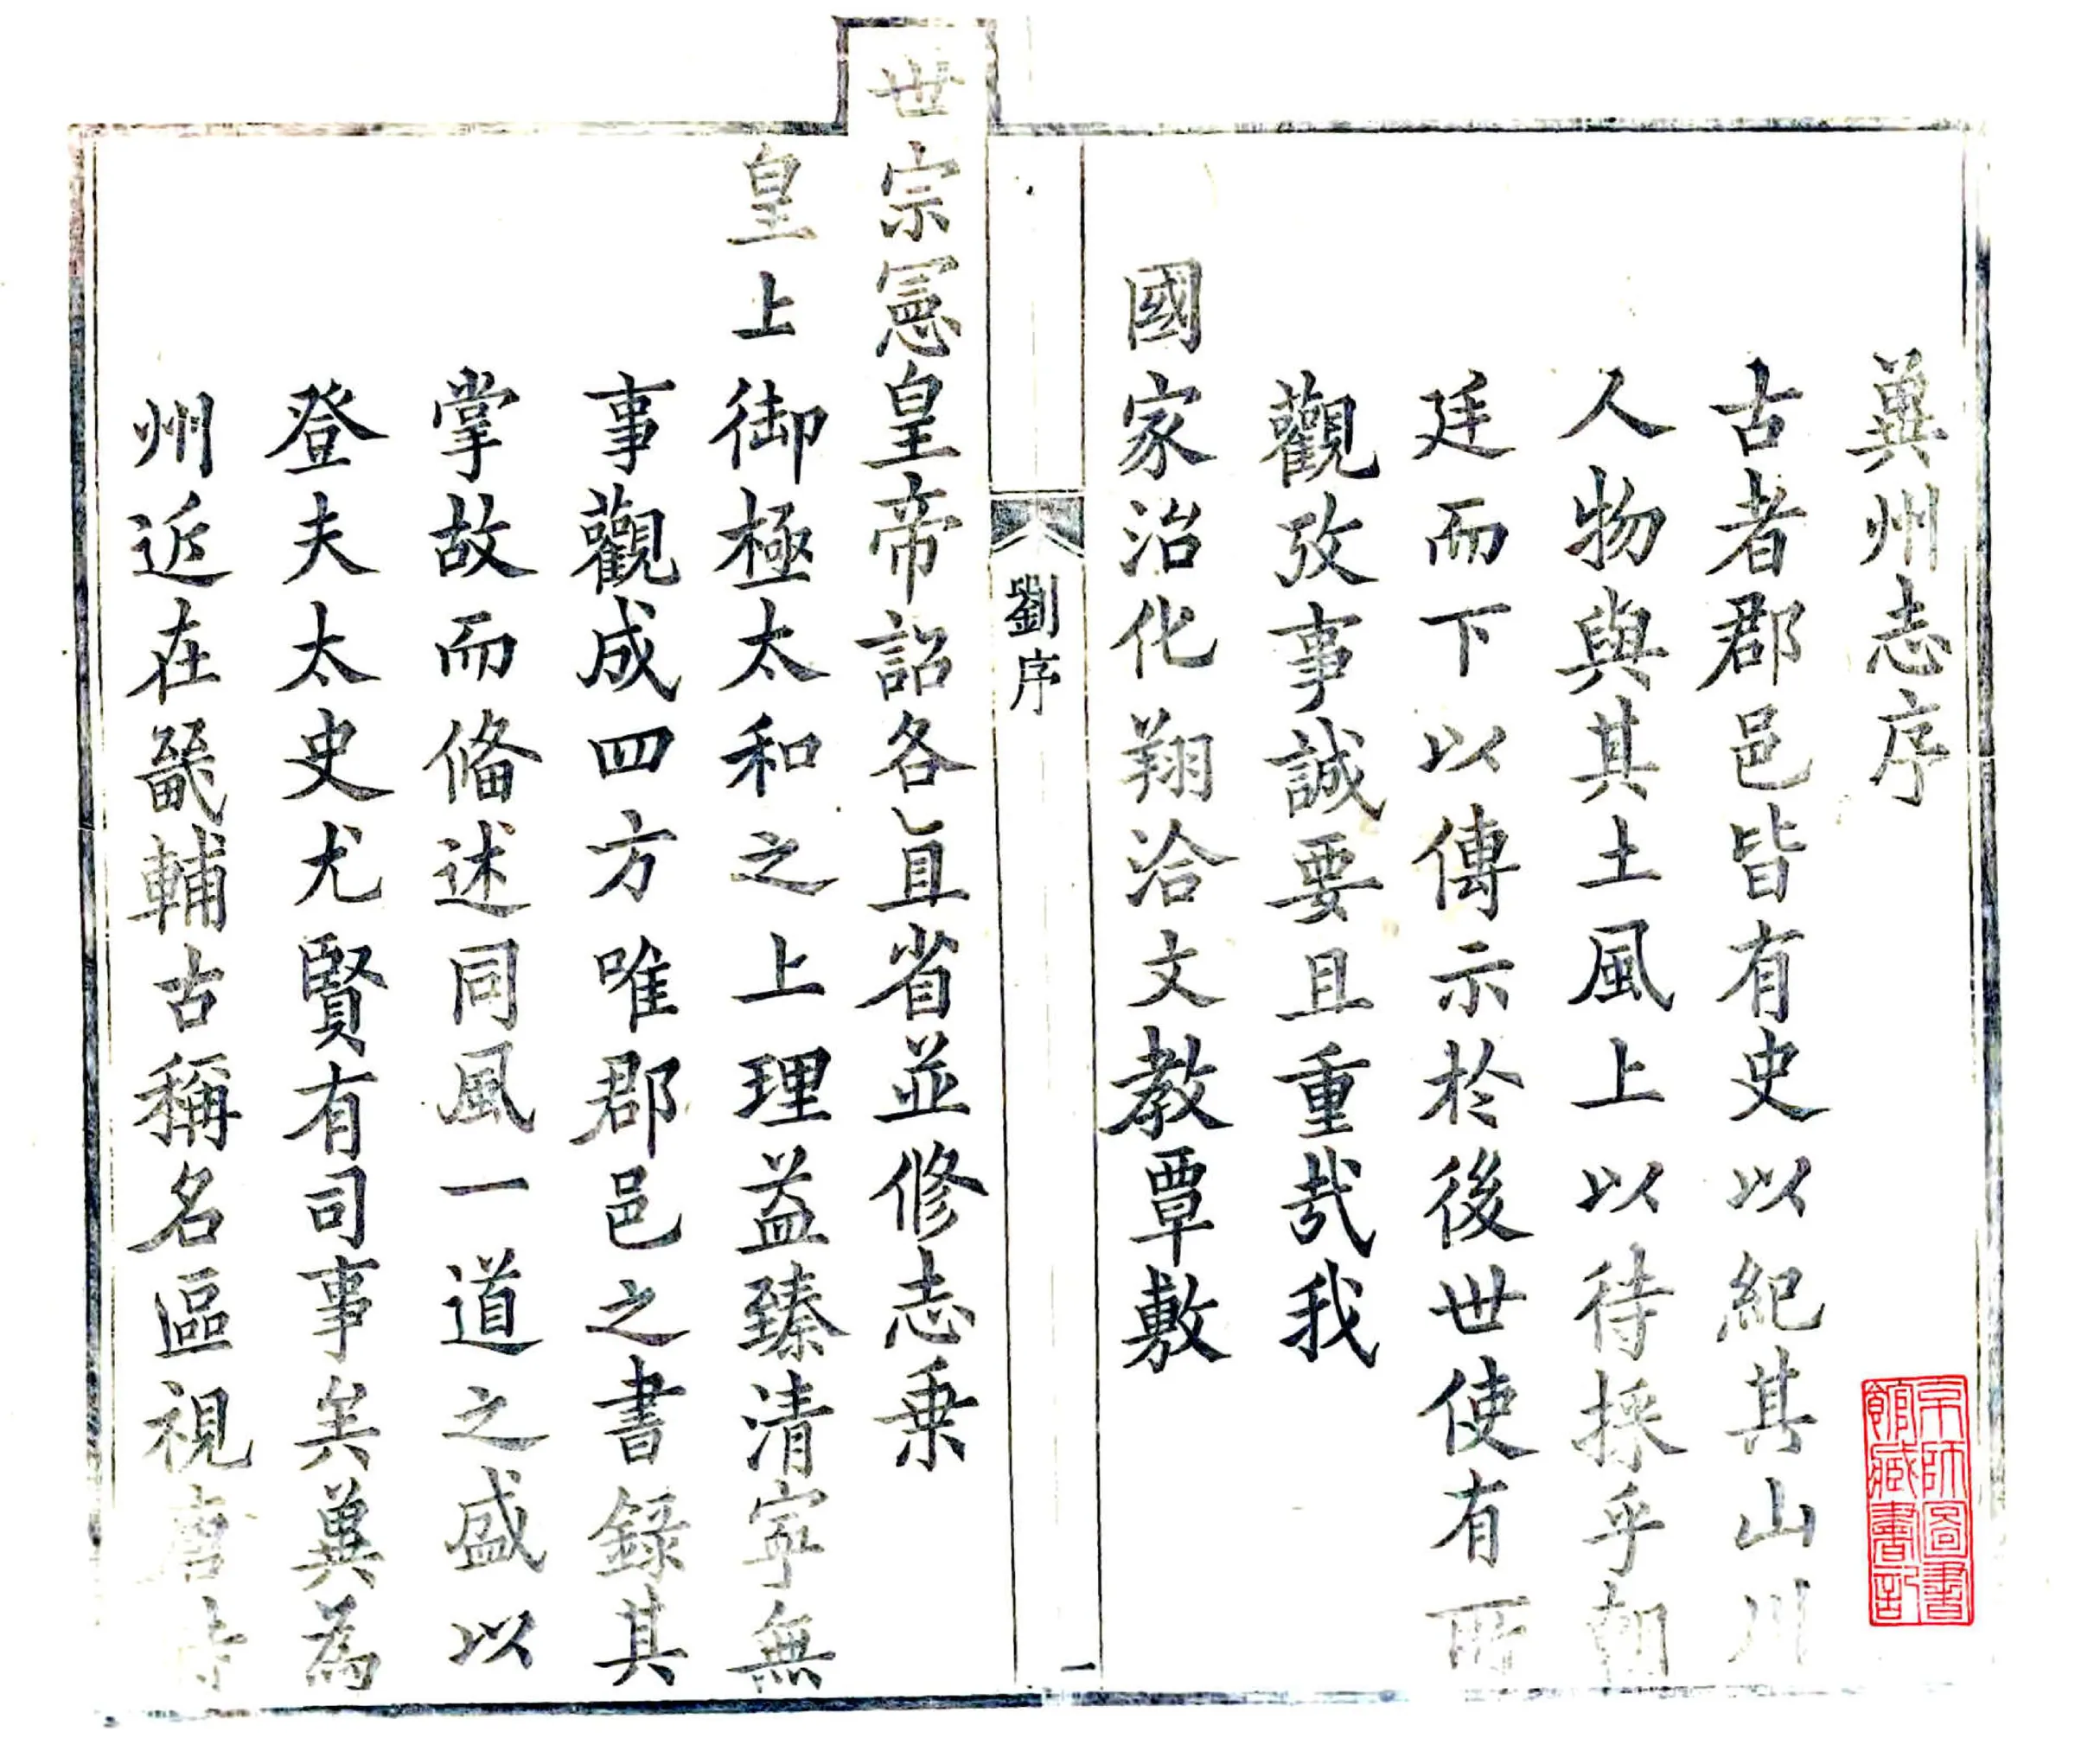 兾州志序
古者郡邑皆有史以紀其山川
人物與其土風上以待採乎朝
廷而下以傳示於後世使有所
觀攷事誠要且重哉我
國家治化翔洽文教覃敷
劉序
一
世宗憲皇帝詔各直省並修志乗
皇上御極太和之上理益臻清寧無
事觀成四方唯郡邑之書錄其
掌故而俻述同風一道之盛以
登夫太史尤賢有司事矣兾為
州近在畿輔古稱名區視唐
京師圖書
館藏書記